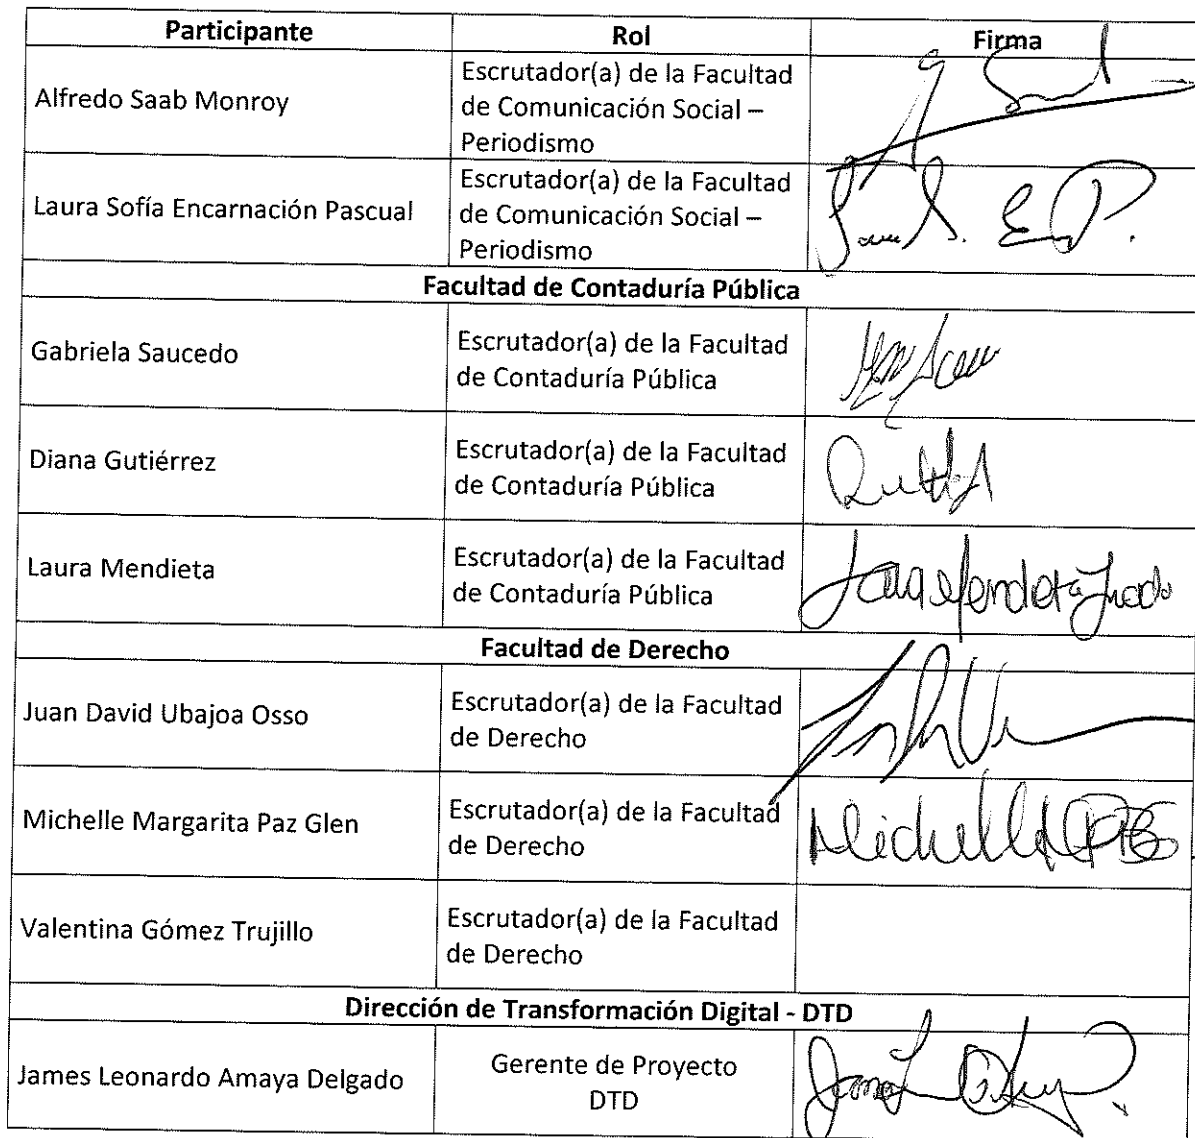 Participante Rol Firma
Alfredo Saab Monroy
Escrutador(a) de la Facultad
de Comunicación Social –
Periodismo
Laura Sofía Encarnación Pascual
Escrutador(a) de la Facultad
de Comunicación Social –
Periodismo
Facultad de Contaduría Pública
Gabriela Saucedo
Escrutador(a) de la Facultad
de Contaduría Pública
Diana Gutiérrez
Escrutador(a) de la Facultad
de Contaduría Pública
Laura Mendieta
Escrutador(a) de la Facultad
de Contaduría Pública
Facultad de Derecho
Juan David Ubajoa Osso
Escrutador(a) de la Facultad
de Derecho
Michelle Margarita Paz Glen
Escrutador(a) de la Facultad
de Derecho
Michelle
Valentina Gómez Trujillo
Escrutador(a) de la Facultad
de Derecho
Dirección de Transformación Digital - DTD
James Leonardo Amaya Delgado
Gerente de Proyecto
DTD